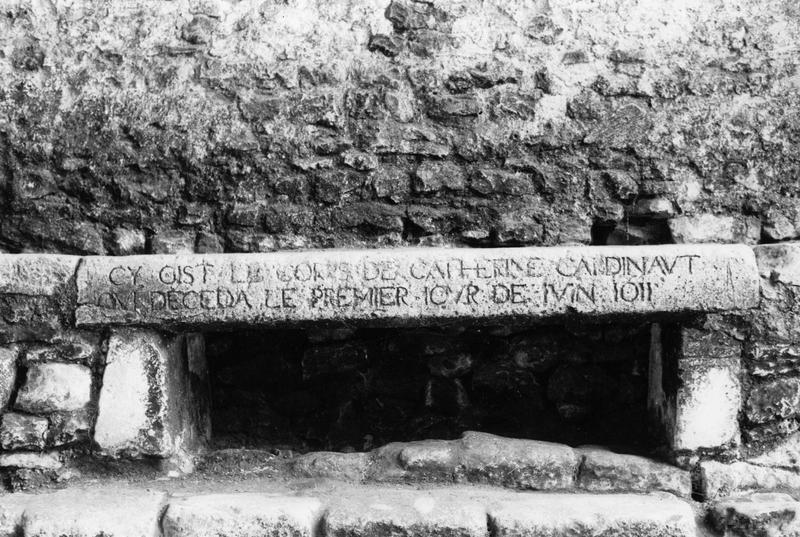 CY GIST LE CORPS DE CATHERINE CARDINAVT
QVI DECEDA LE PREMIER IOVR DE IVIN 1611